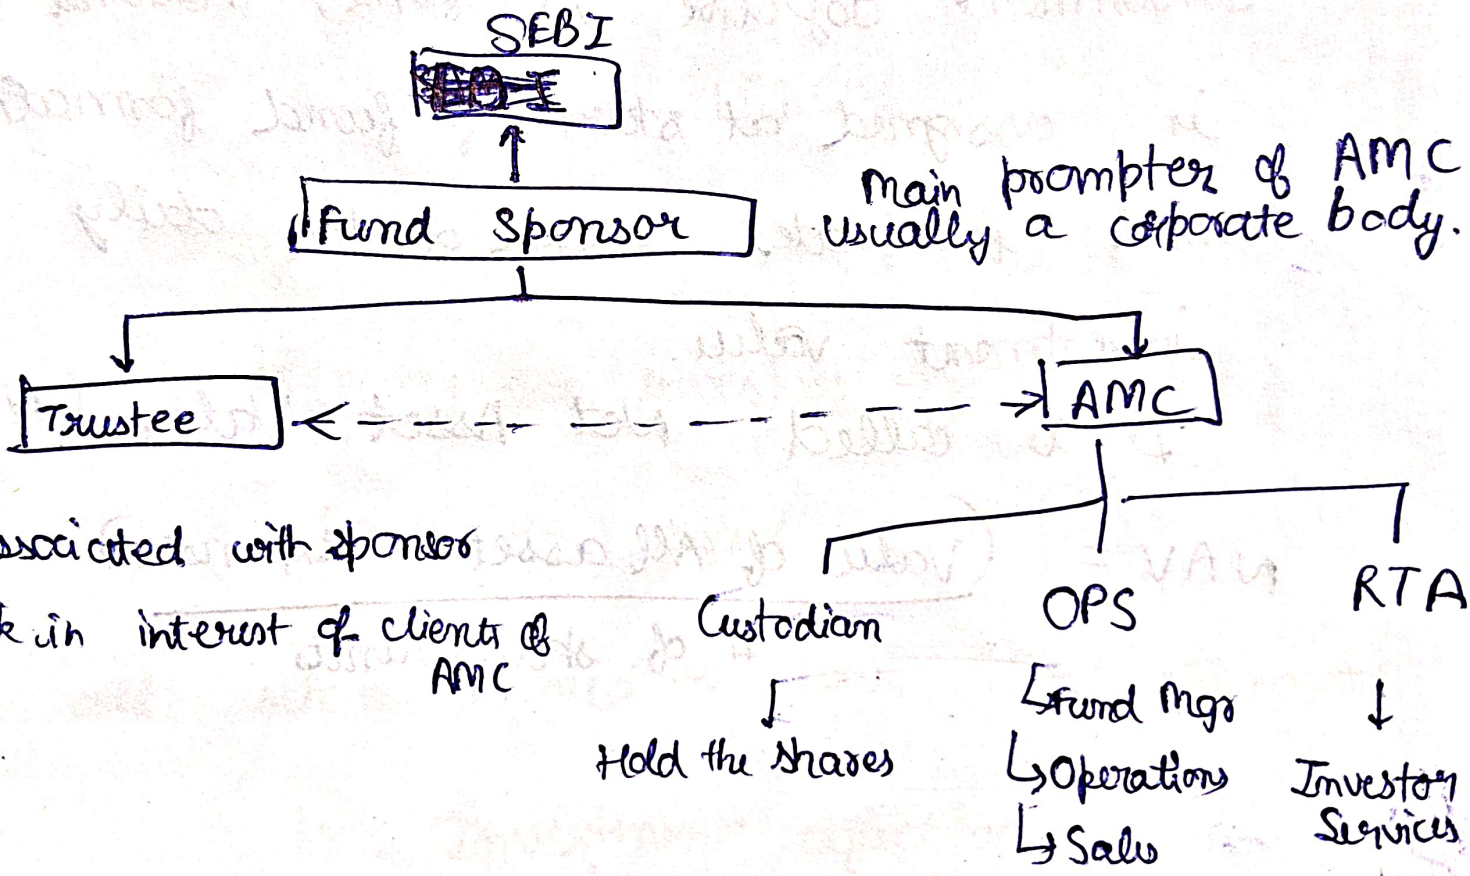 SEBI
Fund Sponsor
Main prompter of AMC
usually a corporate body.
Trustee
AMC
ssociated with sponsor
k in interest of clients of
AMC
Custodian
OPS
RTA
Hold the shares
Fund Mgr
Operations
Sales
Investor
Services